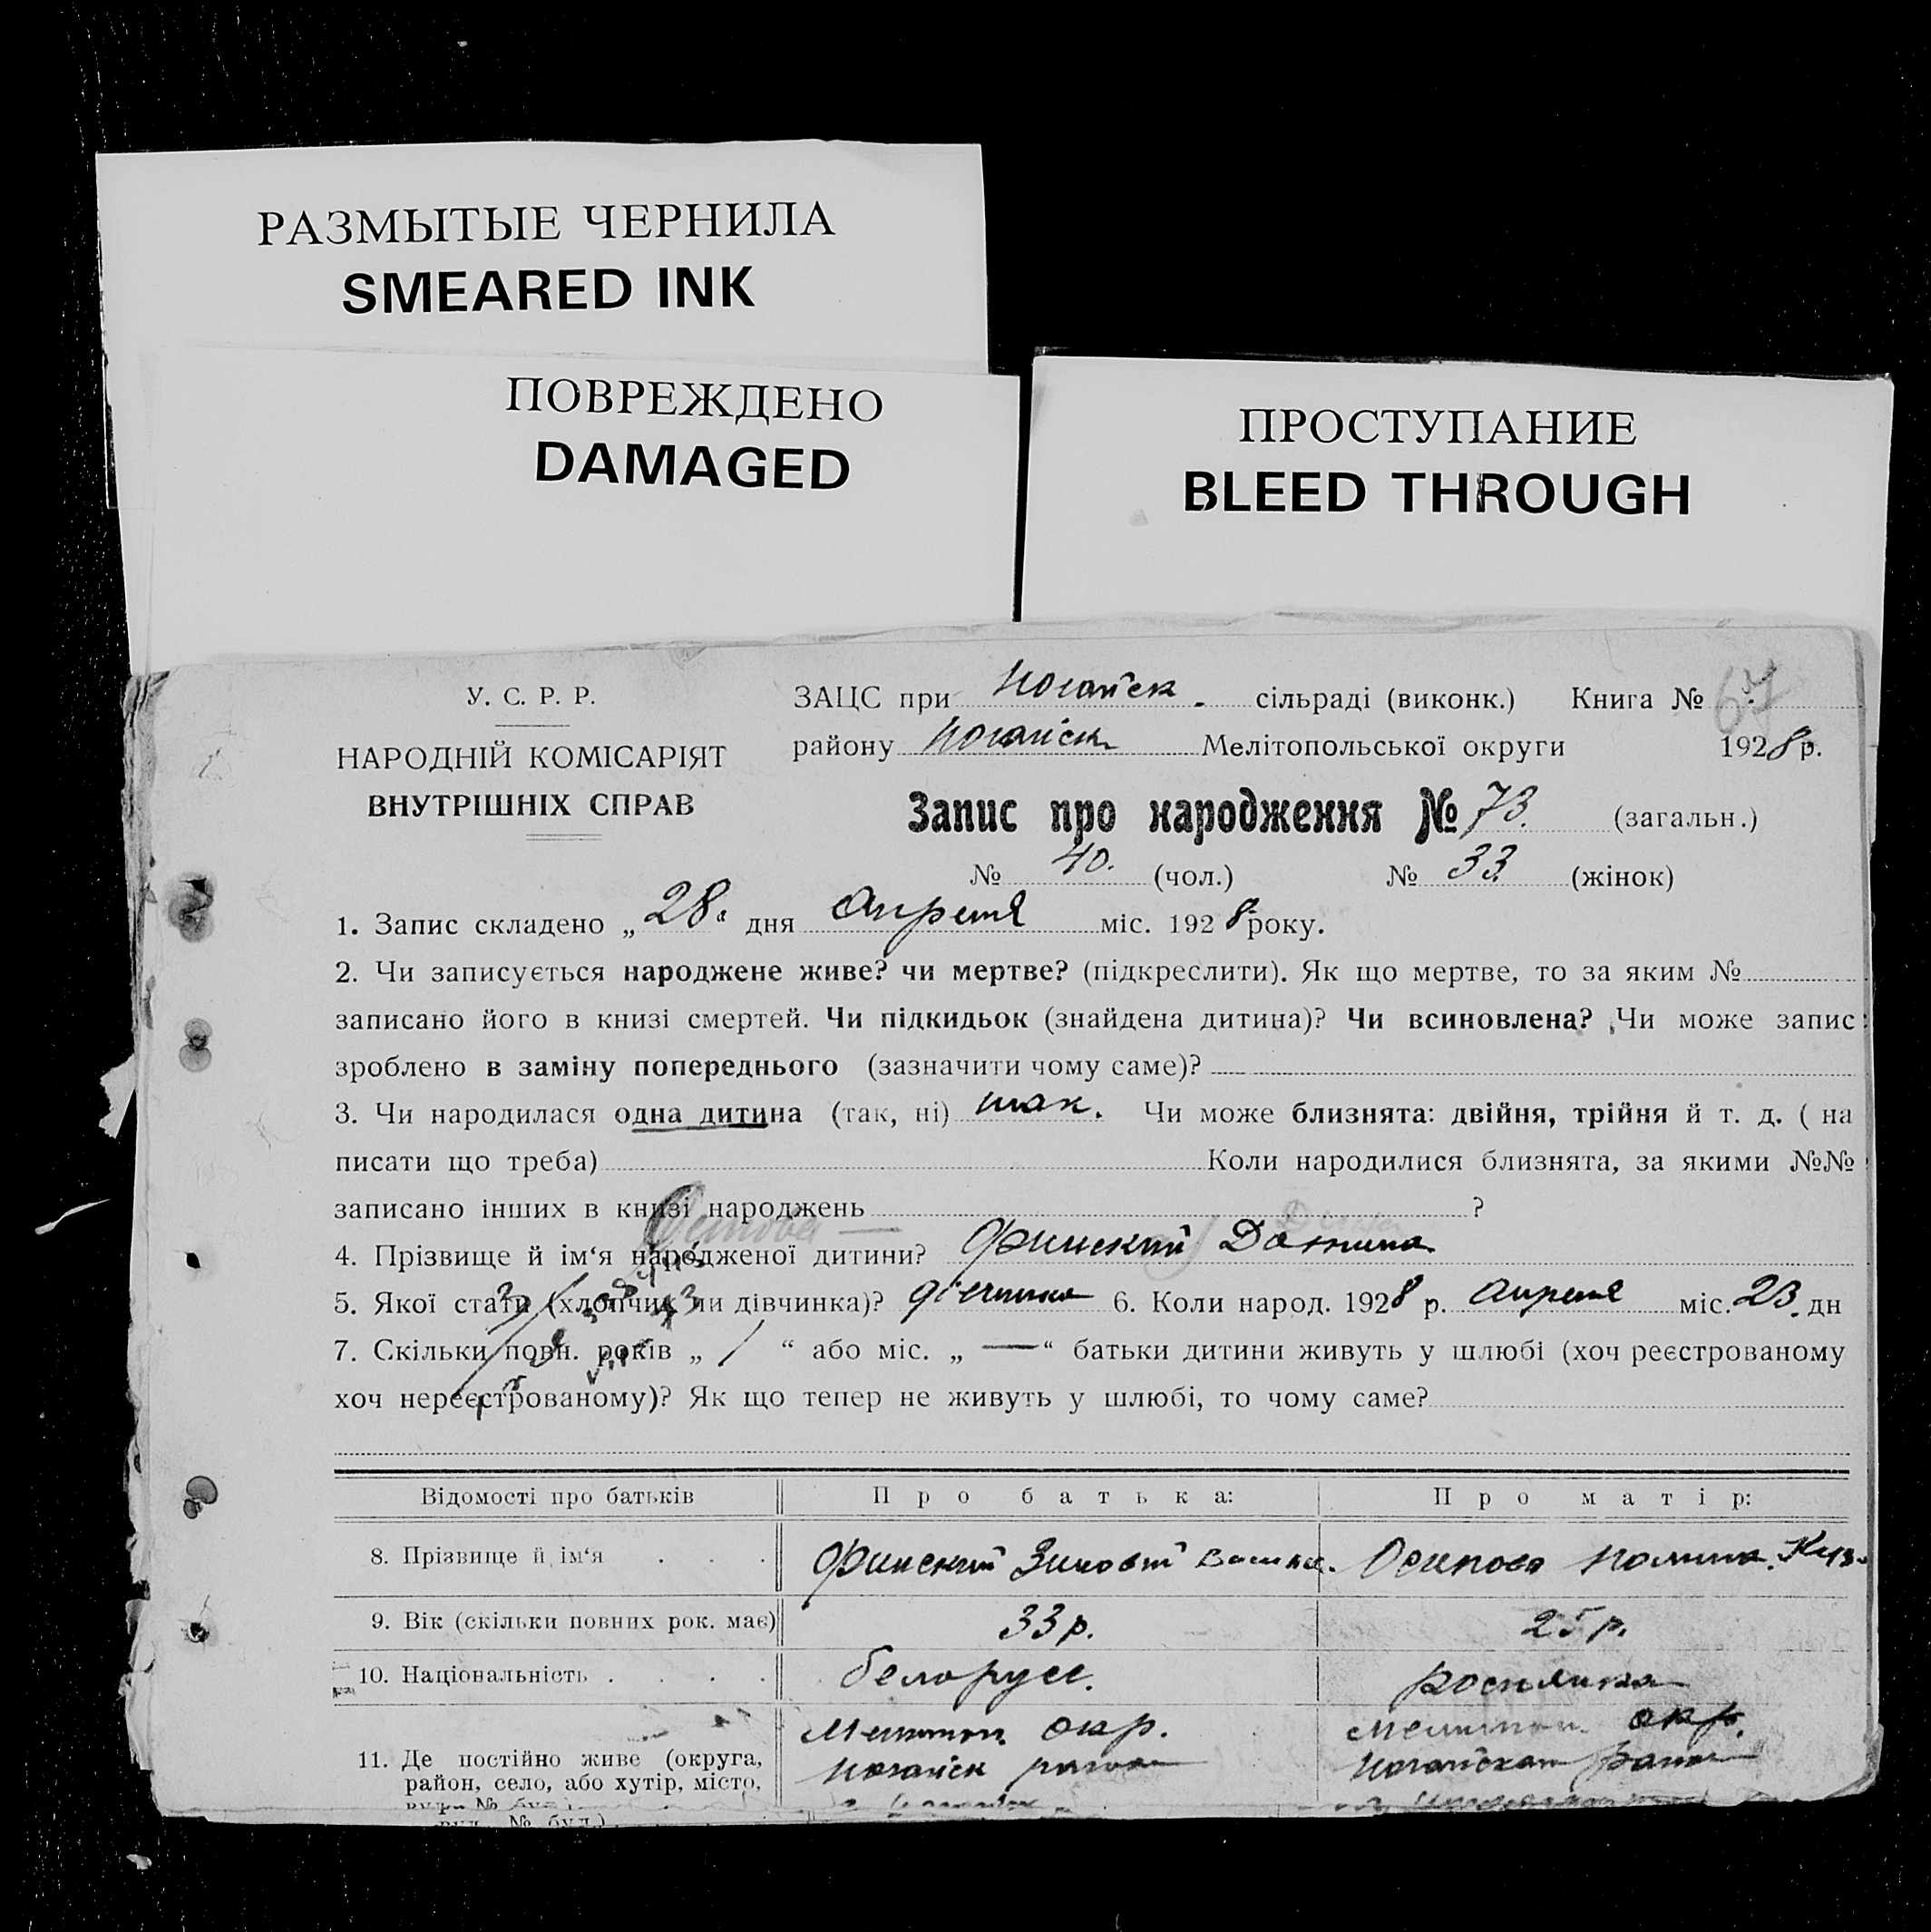 РАЗМЫТЫЕ ЧЕРНИЛА
SMEARED INK
ПОВРЕЖДЕНО
DAMAGED
ПРОСТУПАНИЕ
BLEED THROUGH
У. С. Р. Р.
НАРОДНІЙ КОМІСАРІЯТ
ВНУТРІШНІХ СПРАВ
ЗАЦС при Ногайск. сільраді (виконк.) Книга № 67
району Ногайск Мелітопольської округи 1928 р.
Запис про народження № 73. (загальн.)
№ 40. (чол.) № 33. (жінок)
1. Запис складено „28" дня апреля міс. 1928 року.
2. Чи записується народжене живе? чи мертве? (підкреслити). Як що мертве, то за яким №
записано його в книзі смертей. Чи підкидьок (знайдена дитина)? Чи всиновлена? Чи може запис
зроблено в заміну попереднього (зазначити чому саме)?
3. Чи народилася одна дитина (так, ні) так. Чи може близнята: двійня, трійня й т. д. ( на
писати що треба) Коли народилися близнята, за якими №№
записано інших в книзі народжень ?
4. Прізвище й ім‘я народженої дитини? Финский
5. Якої стати (хлопчик чи дівчинка)? дівчинка 6. Коли народ. 1928 р. апреля міс. 23. дн
7. Скільки повн. років „ / “ або міс. „ — “ батьки дитини живуть у шлюбі (хоч реєстрованому
хоч нереєстрованому)? Як що тепер не живуть у шлюбі, то чому саме?
Відомості про батьків Про батька: Про матір:
8. Прізвище й ім‘я . . . Финский Зиновий Осипова
9. Вік (скільки повних рок. має) 33 р. 25 р.
10. Національність . . . . белорусс. росиянка
11. Де постійно живе (округа, Мелитоп. окр. Мелитоп. окр.
район, село, або хутір, місто, Ногайск район Ногайскан район
вул. № буд.)